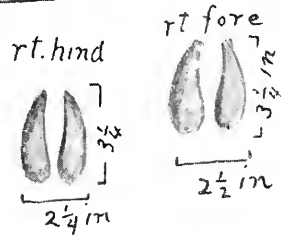 rt. hind
3 1/4
2 1/4 in
rt fore
3 1/4 in
2 1/2 in